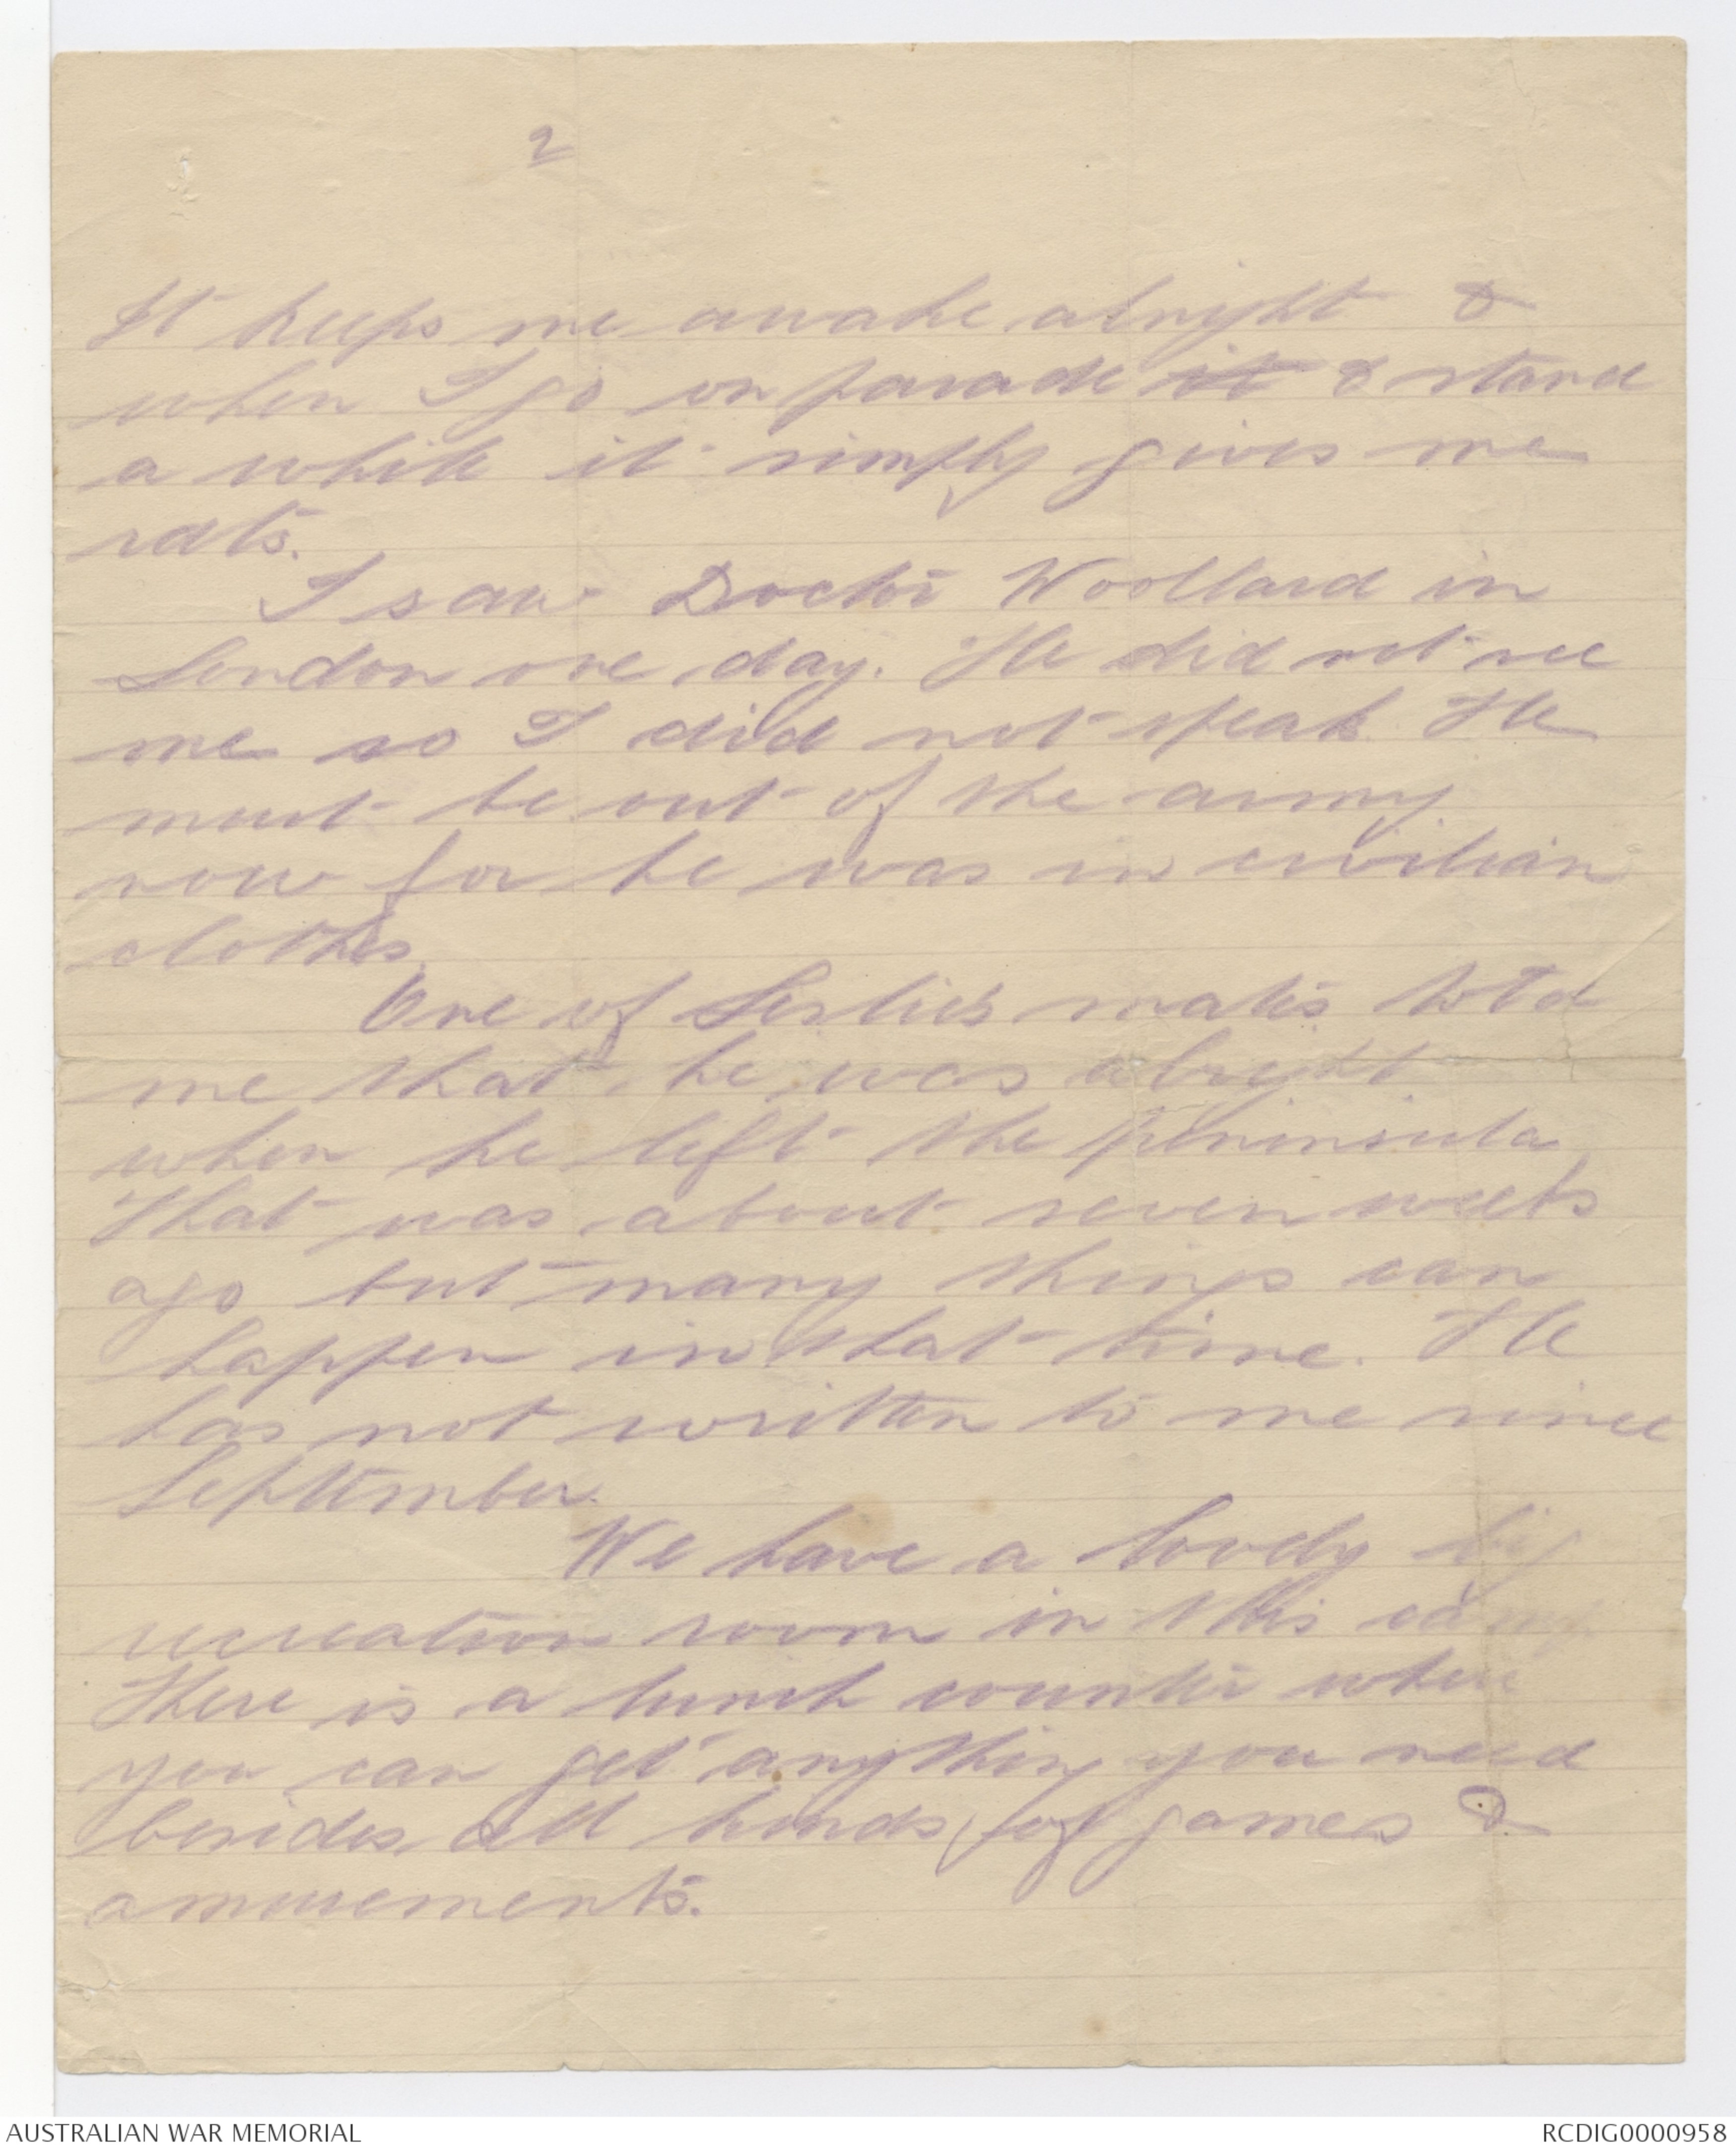 2
It keeps me awake alright &
when I go on parade it & stand
a while it simply gives me
rats.
I saw Doctor Woollard in
London one day. He did not see
me so I did not speak. He
must be out of the army
now for he was in civilian
clothes.
One of Leslie's mates told
me that he was alright
when he left the peninsula
That was about seven weeks
ago but many things can
happen in that time. He
has not written to me since
September.
We have a lovely big
recreation room in this camp
There is a lunch counter where
you can get anything you need
besides all kinds of games &
amusements.
AUSTRALIAN WAR MEMORIAL
RCDIG0000958